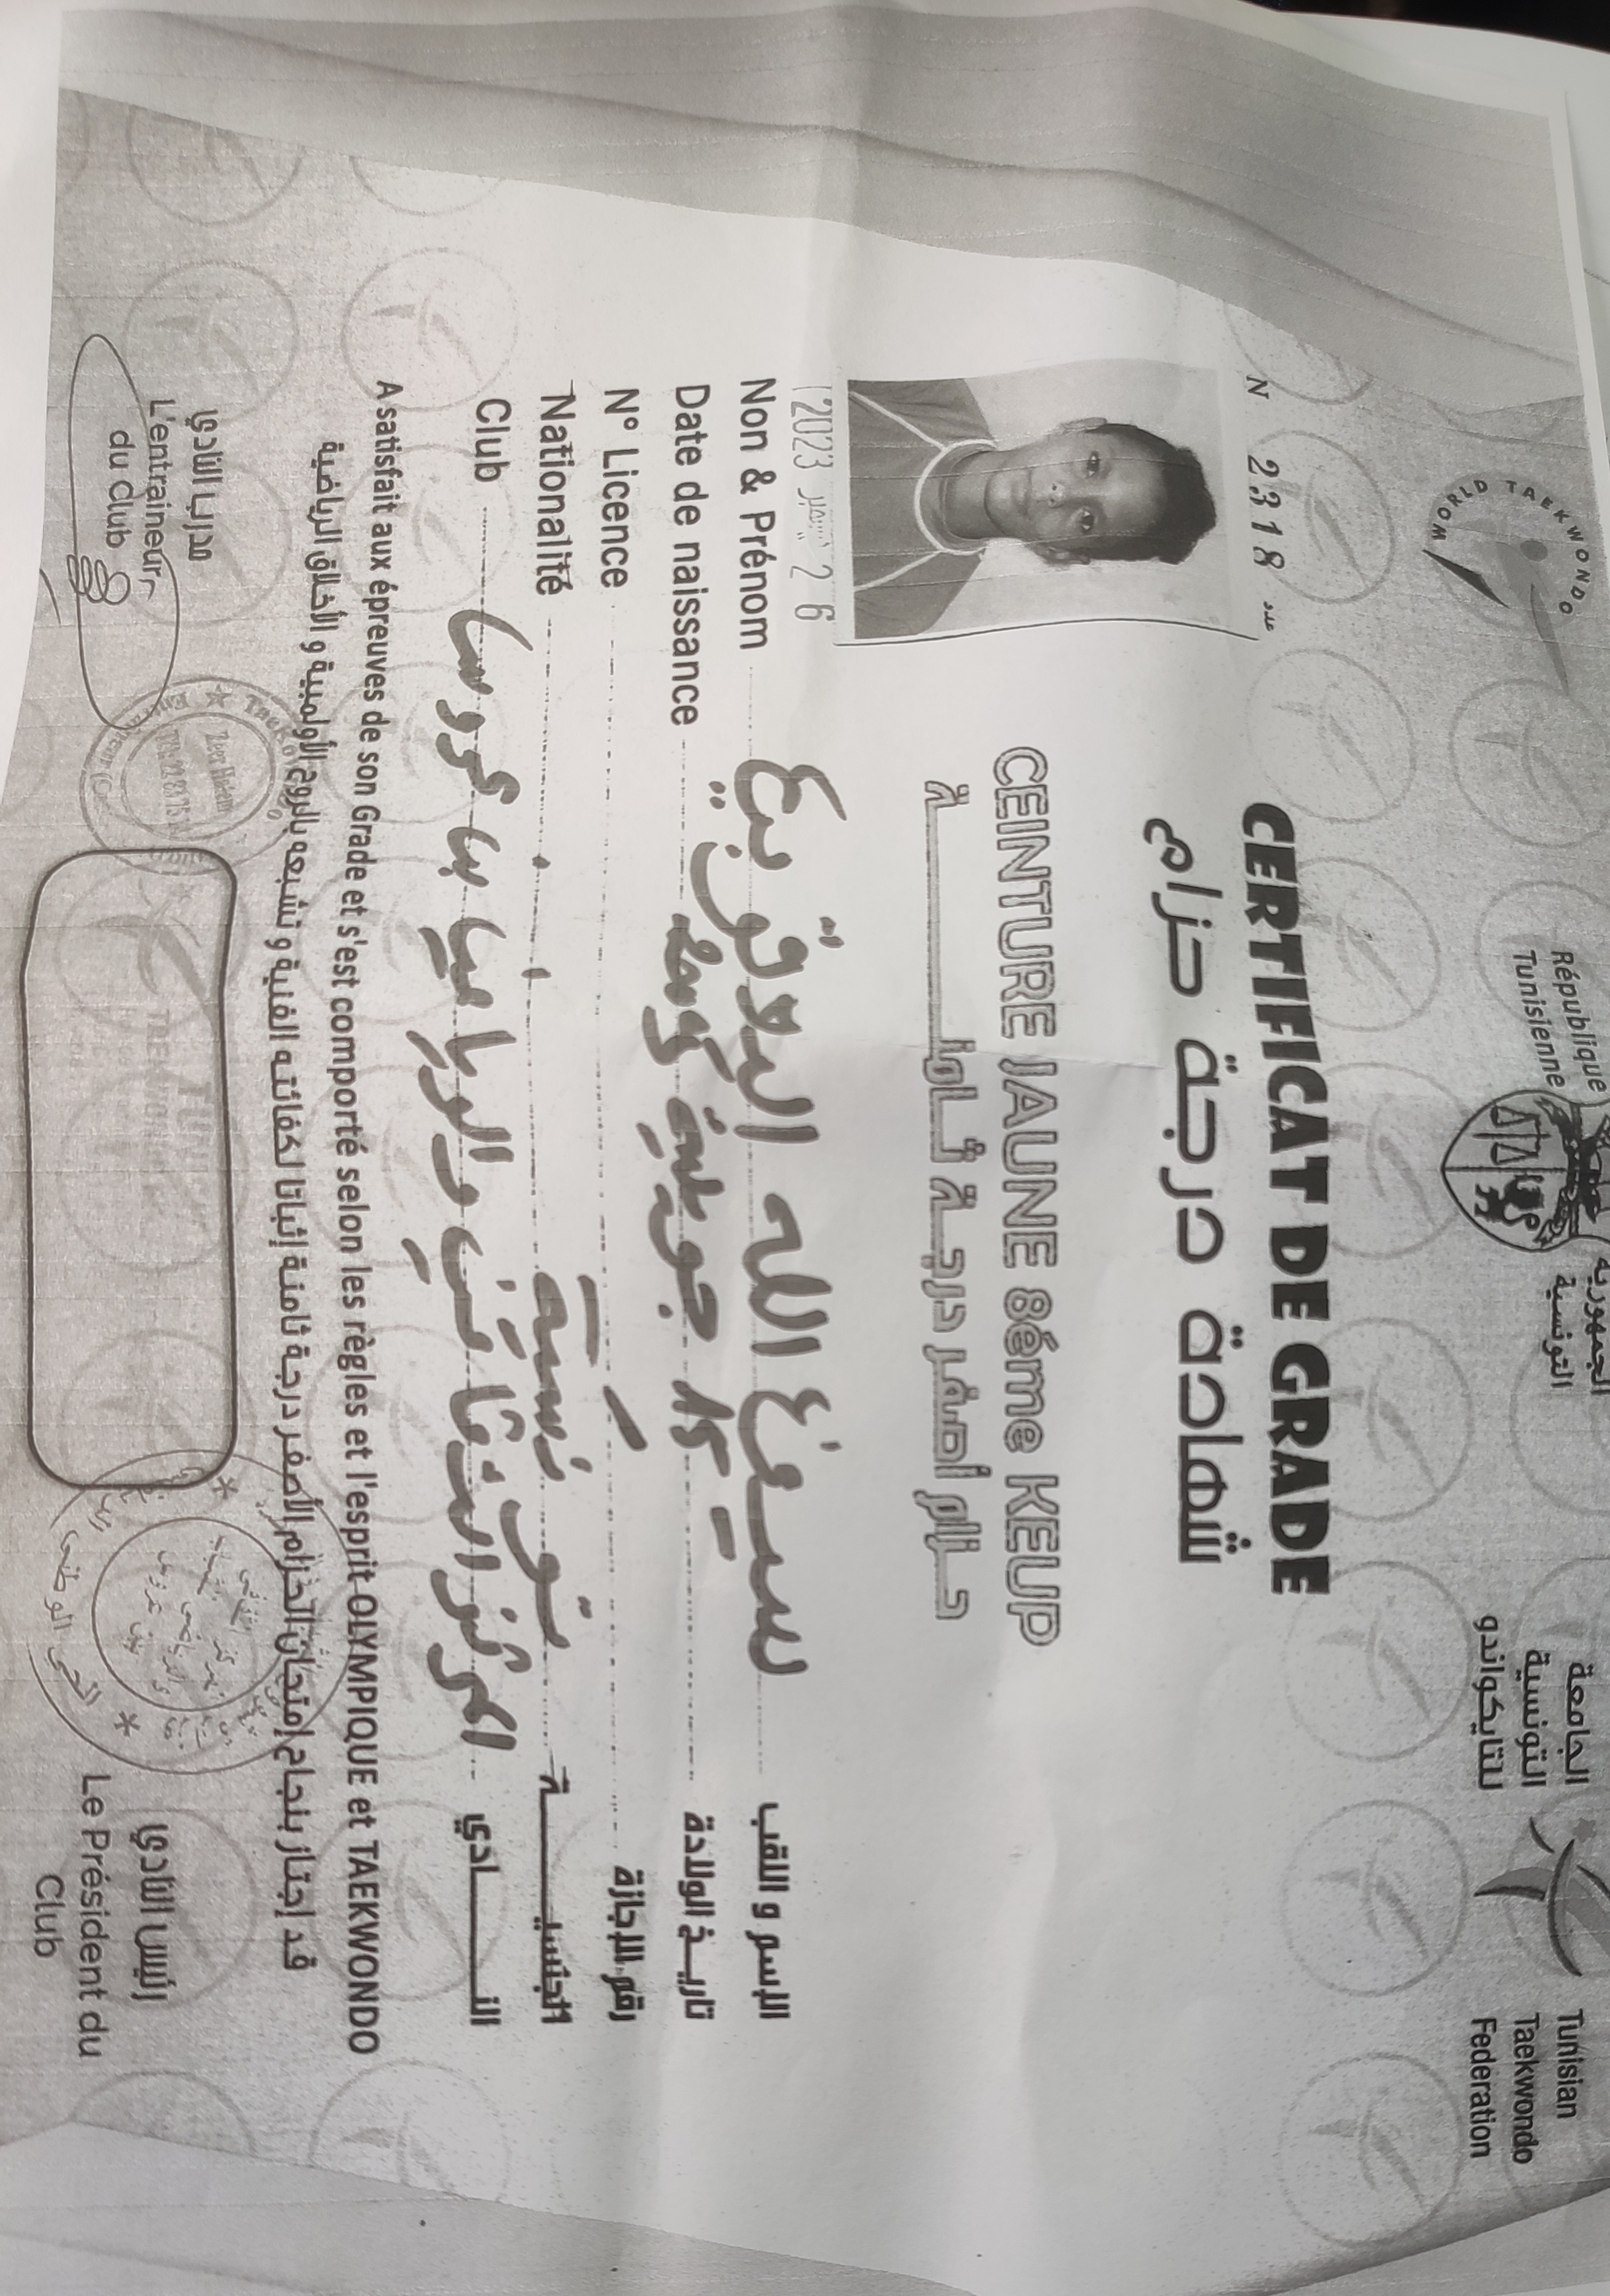 WORLD TAEKWONDO
République
Tunisienne
الجمهورية
التونسية
الجامعة
التونسية
للتايكواندو
Tunisian
Taekwondo
Federation
N 2318 عدد
CERTIFICAT DE GRADE
شهادة درجة حزام
CEINTURE JAUNE 8éme KEUP
حزام أصفر درجة ثامنة
2023 ديسمبر 26
Non & Prénom الله الإسم و اللقب
Date de naissance 15 جويلية تاريخ الولادة
N° Licence رقم الإجازة
Nationalité تونسية الجنسية
Club المركز الثقافي والرياضي النادي
A satisfait aux épreuves de son Grade et s'est comporté selon les règles et l'esprit OLYMPIQUE et TAEKWONDO
قد إجتاز بنجاح إمتحان الحزام الأصفر درجة ثامنة إثباتا لكفائته الفنية و تشبعه بالروح الأولمبية و الأخلاق الرياضية
مدرب النادي
L'entraineur
du club
رئيس النادي
Le Président du
Club